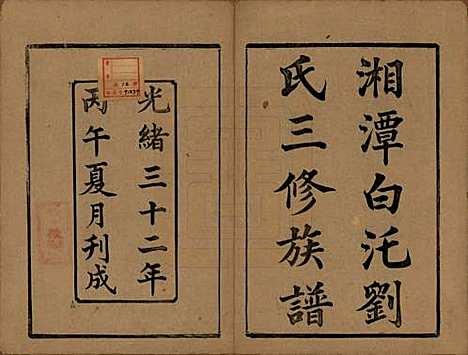 湘潭白汑劉
氏三修族譜
光緒三十二年
丙午夏月刊成